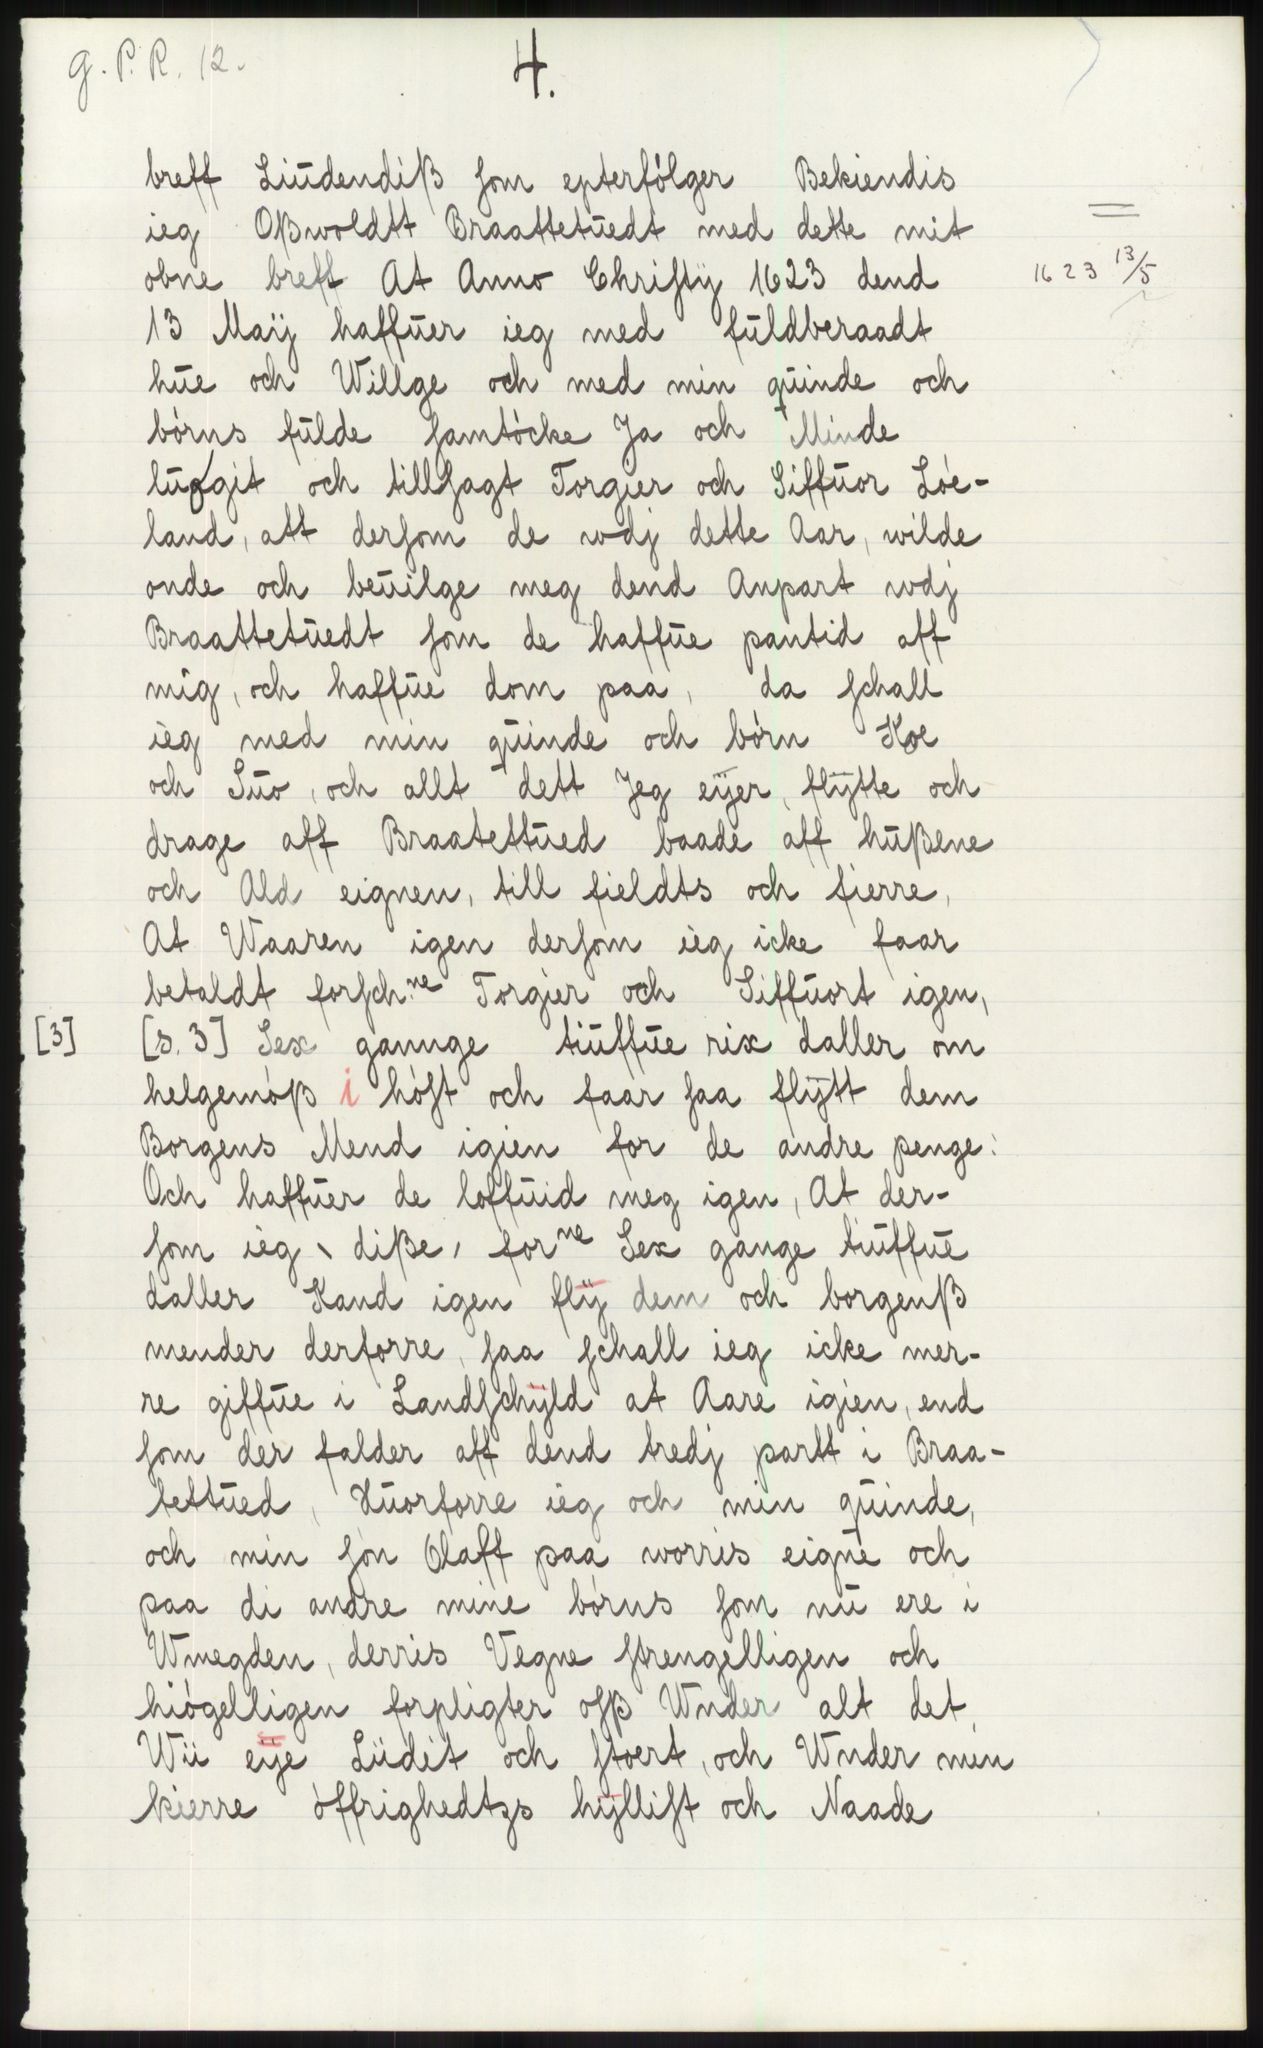 g. P. R. 12.
4.
breff Liudendiß som epterfölger Bekiendis
ieg Oßwoldtt Braattetuedt med dette mit
obne breff At Anno Christÿ 1623 dend
1623 13/5
13 Maÿ haffuer ieg med fuldberaadt
hue och Willge och med min quinde och
börns fulde samtöcke Ja och Minde
luofgit och tillsagt Torgier och Siffuor Löe-
land, att dersom de wdj dette Aar, wilde
onde och beuilge meg dend Anpart wdj
Braattetuedt som de haffue pantid aff
mig, och haffue dom paa, da schall
ieg med min quinde och börn Koe
och Suo, och allt dett Jeg eÿer, flÿtte och
drage aff Braatettued baade aff hußene
och Ald eignen, till fieldts och fierre,
At Waaren igen dersom ieg icke faar
betaldt forsch.ne Torgier och Siffuort igen,
[3] [s. 3] Sex gannge tiuffue rix daller om
helgemöß i höst och faar saa flÿtt dem
Borgens Mend igien for de andre penge:
Och haffuer de loffuid meg igen, At der-
som ieg, diße, forne Sex gange tiuffue
daller Kand igen flÿ dem och borgenß
mender derforre, saa schall ieg icke mer-
re giffue i Landschÿld at Aare igien, end
som der falder aff dend tredj partt i Braa-
tettued, Huorforre ieg och min quinde,
och min sön Olaff paa worris eigne och
paa di andre mine börns som nu ere i
Wmegden, derris Vegne strengelligen och
hiögelligen forpligter osß Wnder alt det
Wii eÿe Liidét och stoert, och Wnder min
kierre öffrighedtzs hÿllist och Naade